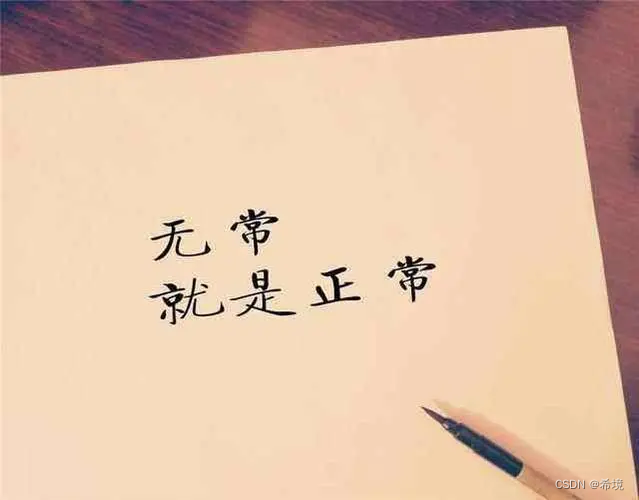 无常
就是正常
CSDN @希境